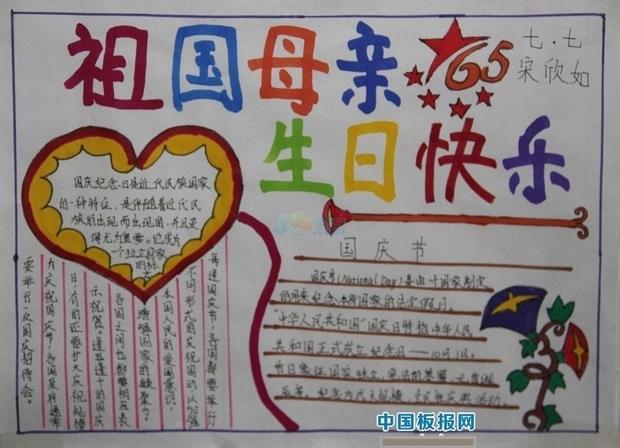 祖国母亲
65
七.七
宋欣如
生日快乐
国庆纪念日是近代民族国家
的一种特征,是伴随着近代民
族的出现而出现的,并且变
得尤为重要。它成为
一个独立国家
的标
每逢国庆节,各国都要举行
不同形式的庆祝活动以加强
本国人民的爱国意识,
增强国家的凝聚力。
各国之间也都要相互表
示祝贺。逢五逢十的国庆
日,有的还要扩大庆祝规模
为庆祝国庆节,各国政府通常
要举行一次国庆招待会。
国庆节
国庆节(National Day)是由一个国家制定
的用来纪念本身的国家的法定假日。
"中华人民共和国"国庆日特指中华人民
共和国正式成立纪念日——10月1日。
中国板报网